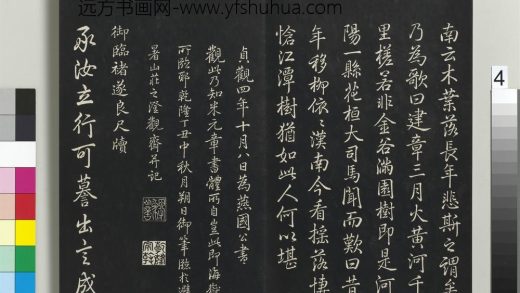 远方书画网-www.yfshuhua.com
南云木葉落長年悲斯之謂矣
乃為歌曰建章三月火黃河千
里槎若非金谷滿園樹即是河
陽一縣花桓大司馬聞而歎曰昔
年移柳依依漢南今看搖落悽
愴江潭樹猶如此人何以堪
貞觀四年十月八日為燕國公書
觀此乃知米元章書體所自豈此即海嶽
所臨耶乾隆丁丑中秋月朔日御筆臨於避
暑山莊之澄觀齋并記
御臨褚遂良尺牘
承汝立行可譽出言成
4